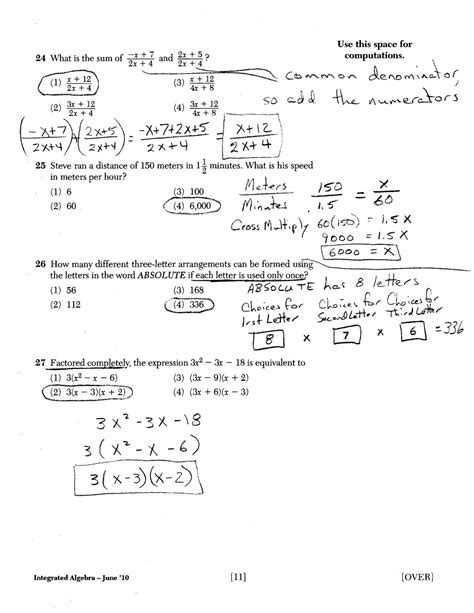 Use this space for
computations.
24 What is the sum of (−x + 7)/(2x + 4) and (2x + 5)/(2x + 4)?
(1) (x + 12)/(2x + 4) (3) (x + 12)/(4x + 8)
(2) (3x + 12)/(2x + 4) (4) (3x + 12)/(4x + 8)
common denominator,
so add the numerators
(−x+7)/(2x+4) + (2x+5)/(2x+4) = (−x+7+2x+5)/(2x+4) = (x+12)/(2x+4)
25 Steve ran a distance of 150 meters in 1 1/2 minutes. What is his speed
in meters per hour?
(1) 6 (3) 100
(2) 60 (4) 6,000
Meters/Minutes 150/1.5 = x/60
Cross Multiply 60(150) = 1.5x
9000 = 1.5x
6000 = x
26 How many different three-letter arrangements can be formed using
the letters in the word ABSOLUTE if each letter is used only once?
(1) 56 (3) 168
(2) 112 (4) 336
ABSOLUTE has 8 letters
Choices for Choices for Choices for
1rst Letter Second Letter Third Letter
8 x 7 x 6 = 336
27 Factored completely, the expression 3x² − 3x − 18 is equivalent to
(1) 3(x² − x − 6) (3) (3x − 9)(x + 2)
(2) 3(x − 3)(x + 2) (4) (3x + 6)(x − 3)
3x² −3x −18
3(x² − x − 6)
3(x−3)(x−2)
Integrated Algebra – June '10 [11] [OVER]